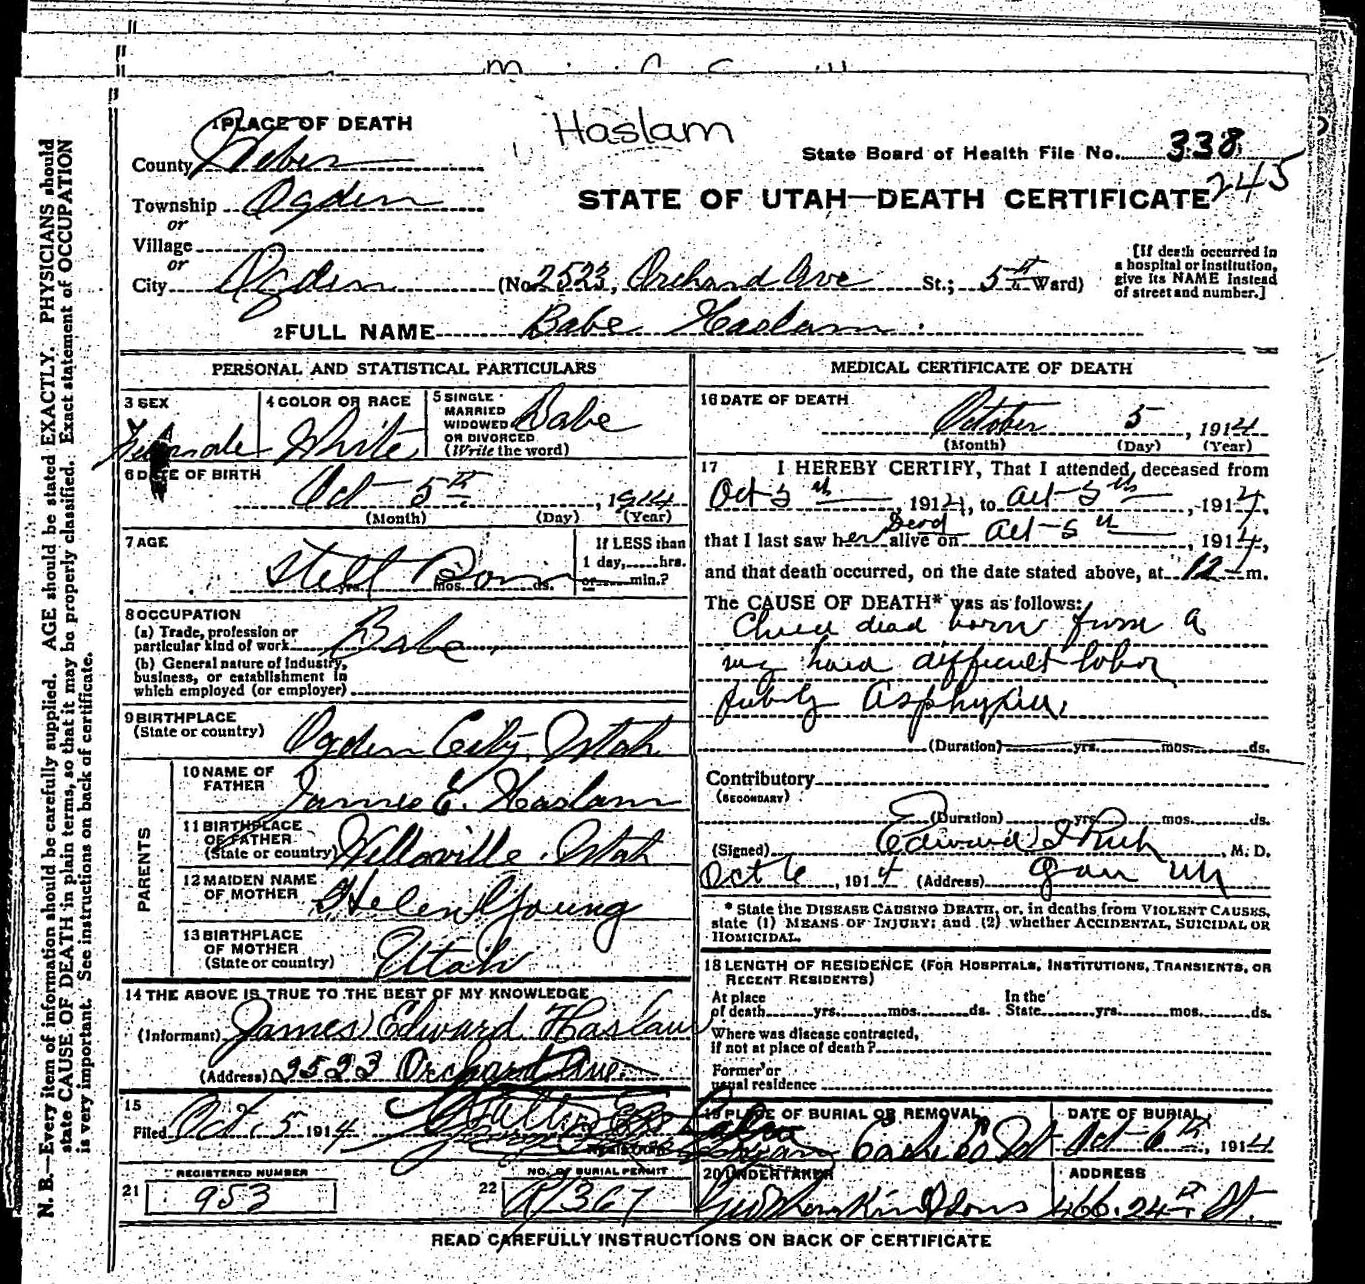 Haslam
1 PLACE OF DEATH
County Weber
State Board of Health File No. 338
245
Township Ogden
STATE OF UTAH—DEATH CERTIFICATE
or
Village
or
City Ogden (No. 2523, Orchard Ave St.; 5th Ward)
[If death occurred in
a hospital or institution,
give its NAME instead
of street and number.]
2 FULL NAME Babe Haslam
PERSONAL AND STATISTICAL PARTICULARS
3 SEX Female
4 COLOR OR RACE White
5 SINGLE
MARRIED
WIDOWED
OR DIVORCED
(Write the word) Babe
6 DATE OF BIRTH
Oct 5th, 1914
(Month) (Day) (Year)
7 AGE
Still Born
yrs. mos. ds.
If LESS than
1 day, hrs.
or min.?
8 OCCUPATION
(a) Trade, profession or
particular kind of work Babe
(b) General nature of industry,
business, or establishment in
which employed (or employer)
9 BIRTHPLACE
(State or country) Ogden City, Utah
PARENTS
10 NAME OF
FATHER James E. Haslam
11 BIRTHPLACE
OF FATHER
(State or country) Wellsville, Utah
12 MAIDEN NAME
OF MOTHER Helen Young
13 BIRTHPLACE
OF MOTHER
(State or country) Utah
14 THE ABOVE IS TRUE TO THE BEST OF MY KNOWLEDGE
(Informant) James Edward Haslam
(Address) 2523 Orchard Ave.
15
Filed Oct. 5 1914
REGISTRAR
REGISTERED NUMBER
21 953
NO. of BURIAL PERMIT
22 R/367
MEDICAL CERTIFICATE OF DEATH
16 DATE OF DEATH
October 5, 1914
(Month) (Day) (Year)
17 I HEREBY CERTIFY, That I attended deceased from
Oct 5th, 1914, to Oct 5th, 1914,
that I last saw her Dead alive on Oct 5th, 1914,
and that death occurred, on the date stated above, at 12 m.
The CAUSE OF DEATH* was as follows:
Child dead born from a
hard difficult labor
Asphyxia.
(Duration) yrs. mos. ds.
Contributory
(SECONDARY)
(Duration) yrs. mos. ds.
(Signed) Edward I Rich, M. D.
Oct 6, 1914 (Address)
* State the DISEASE CAUSING DEATH, or, in deaths from VIOLENT CAUSES,
state (1) MEANS OF INJURY; and (2) whether ACCIDENTAL, SUICIDAL OR
HOMICIDAL.
18 LENGTH OF RESIDENCE (FOR HOSPITALS, INSTITUTIONS, TRANSIENTS, OR
RECENT RESIDENTS)
At place
of death yrs. mos. ds.
In the
State yrs. mos. ds.
Where was disease contracted,
if not at place of death?
Former or
usual residence
19 PLACE OF BURIAL OR REMOVAL
Cache Co
DATE OF BURIAL
Oct 6th, 1914
20 UNDERTAKER
ADDRESS
466. 24th St.
READ CAREFULLY INSTRUCTIONS ON BACK OF CERTIFICATE
N. B.—Every item of information should be carefully supplied. AGE should be stated EXACTLY. PHYSICIANS should
state CAUSE OF DEATH in plain terms, so that it may be properly classified. Exact statement of OCCUPATION
is very important. See instructions on back of certificate.